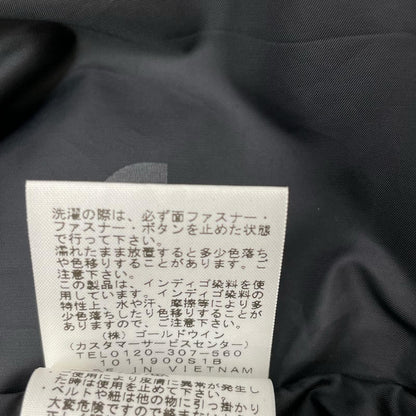 洗濯の際は、必ず面ファスナー・
ファスナー・ボタンを止めた状態
で行って下さい。
濡れたまま放置すると多少色落ち
や色移りすることがあります。ご
注意下さい。
この製品は、インディゴ染料を使
用しています。インディゴ染料の
特性上、水や汗、摩擦等により多
少色落ちしたり色移りすることが
ありますので、ご注意下さい。
(株)ゴールドウイン
(カスタマーサービスセンター)
TEL0120-307-560
1011900S1B
IN VIETNAM
により皮膚に異常が発生し
た時は使用を止めて下さい。
ベルトや紐は他の物に引っ掛かり
大変危険ですので絡まない